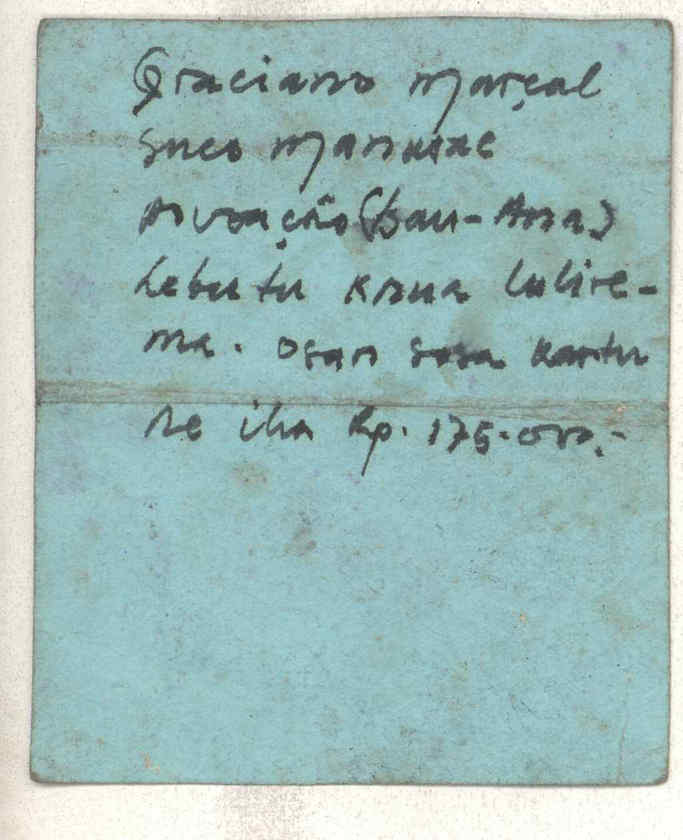 Graciano Marçal
Suco Manutae
Povoação (Dau-Ana)
Lebutu knua Lulire-
ma. Osan sosa kantu
ne iha Rp. 175.000.-